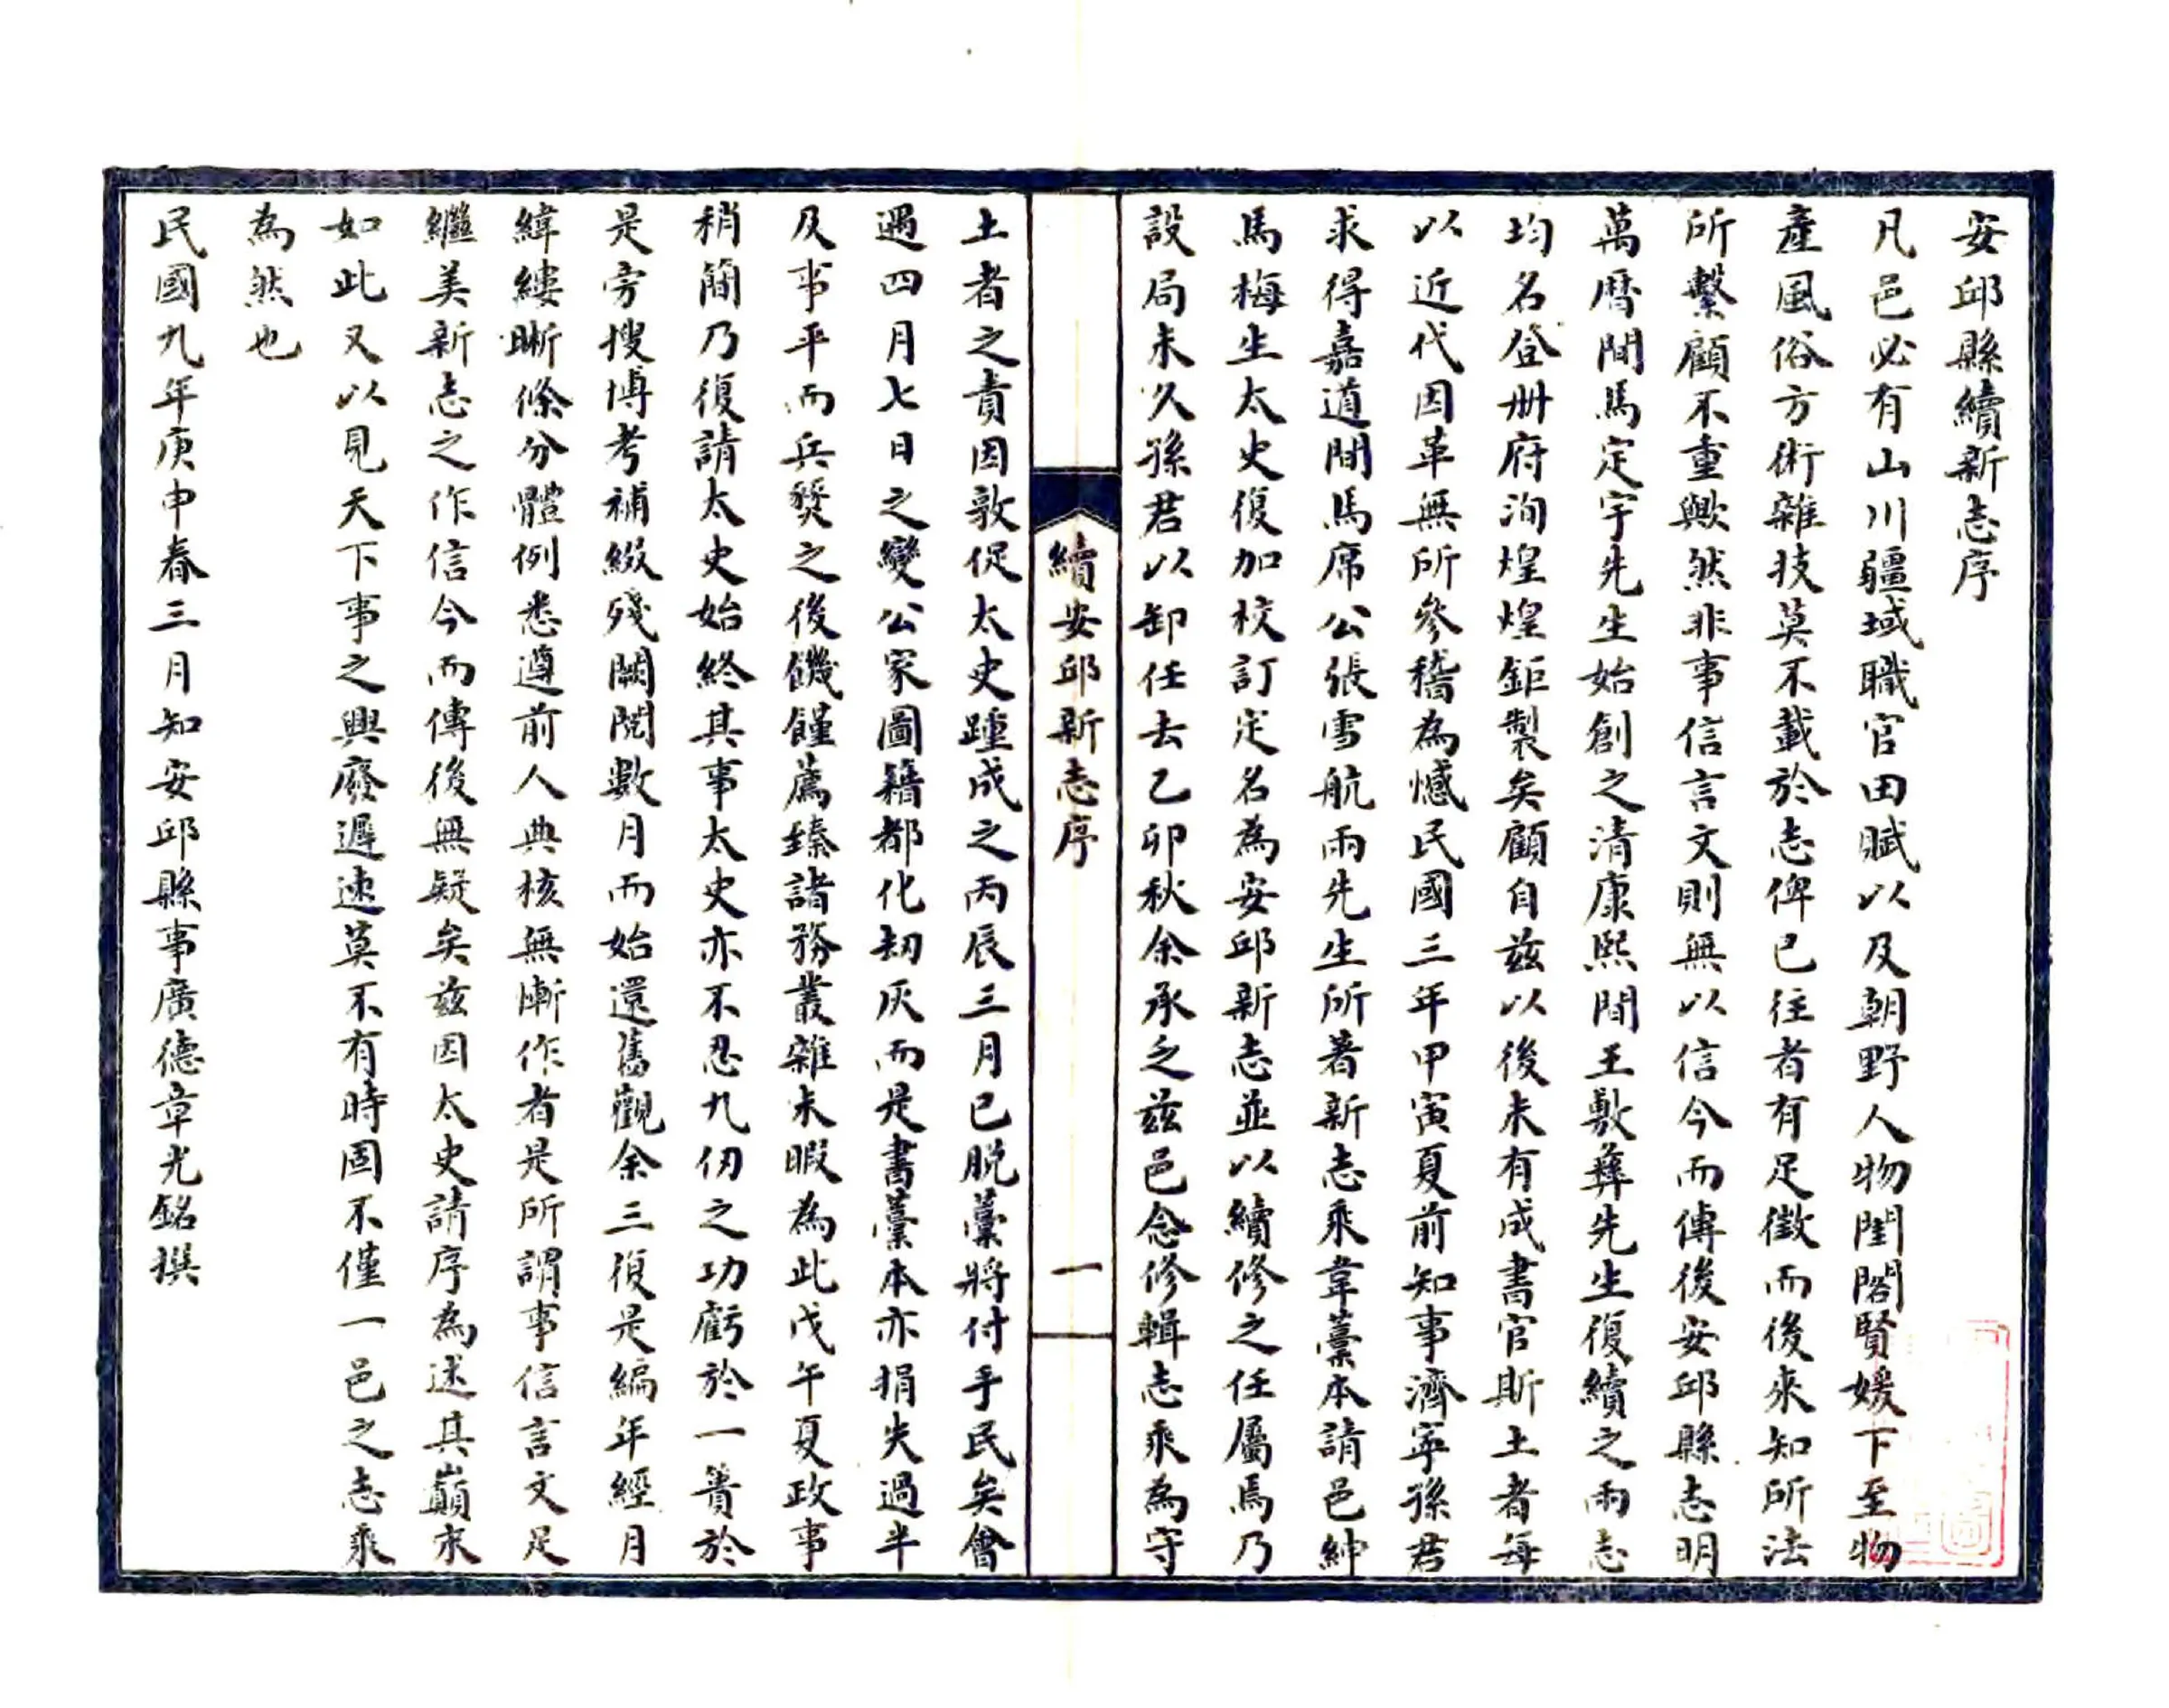 安邱縣續新志序
凡邑必有山川疆域職官田賦以及朝野人物閨閣賢媛下至物
產風俗方術雜技莫不載於志俾已往者有足徵而後來知所法
所繫顧不重歟然非事信言文則無以信今而傳後安邱縣志明
萬曆間馬定宇先生始創之清康熙間王敷彝先生復續之兩志
均名登冊府洵煌煌鉅製矣顧自茲以後未有成書官斯土者每
以近代因革無所參稽為憾民國三年甲寅夏前知事濟寧孫君
求得嘉道間馬席公張雪航兩先生所著新志乘韋藳本請邑紳
馬梅生太史復加校訂定名為安邱新志並以續修之任屬焉乃
設局未久孫君以卸任去乙卯秋余承乏茲邑念修輯志乘為守
續安邱新志序
一
土者之責因敦促太史踵成之丙辰三月已脫藳將付手民矣會
遇四月七日之變公家圖籍都化劫灰而是書藳本亦捐失過半
及事平而兵燹之後饑饉薦臻諸務叢雜未暇為此戊午夏政事
稍簡乃復請太史始終其事太史亦不忍九仞之功虧於一簣於
是旁搜博考補綴殘闕閱數月而始還舊觀余三復是編年經月
緯縷晰條分體例悉遵前人典核無慚作者是所謂事信言文足
繼美新志之作信今而傳後無疑矣茲因太史請序為述其巔末
如此又以見天下事之興廢遲速莫不有時固不僅一邑之志乘
為然也
民國九年庚申春三月知安邱縣事廣德章光銘撰